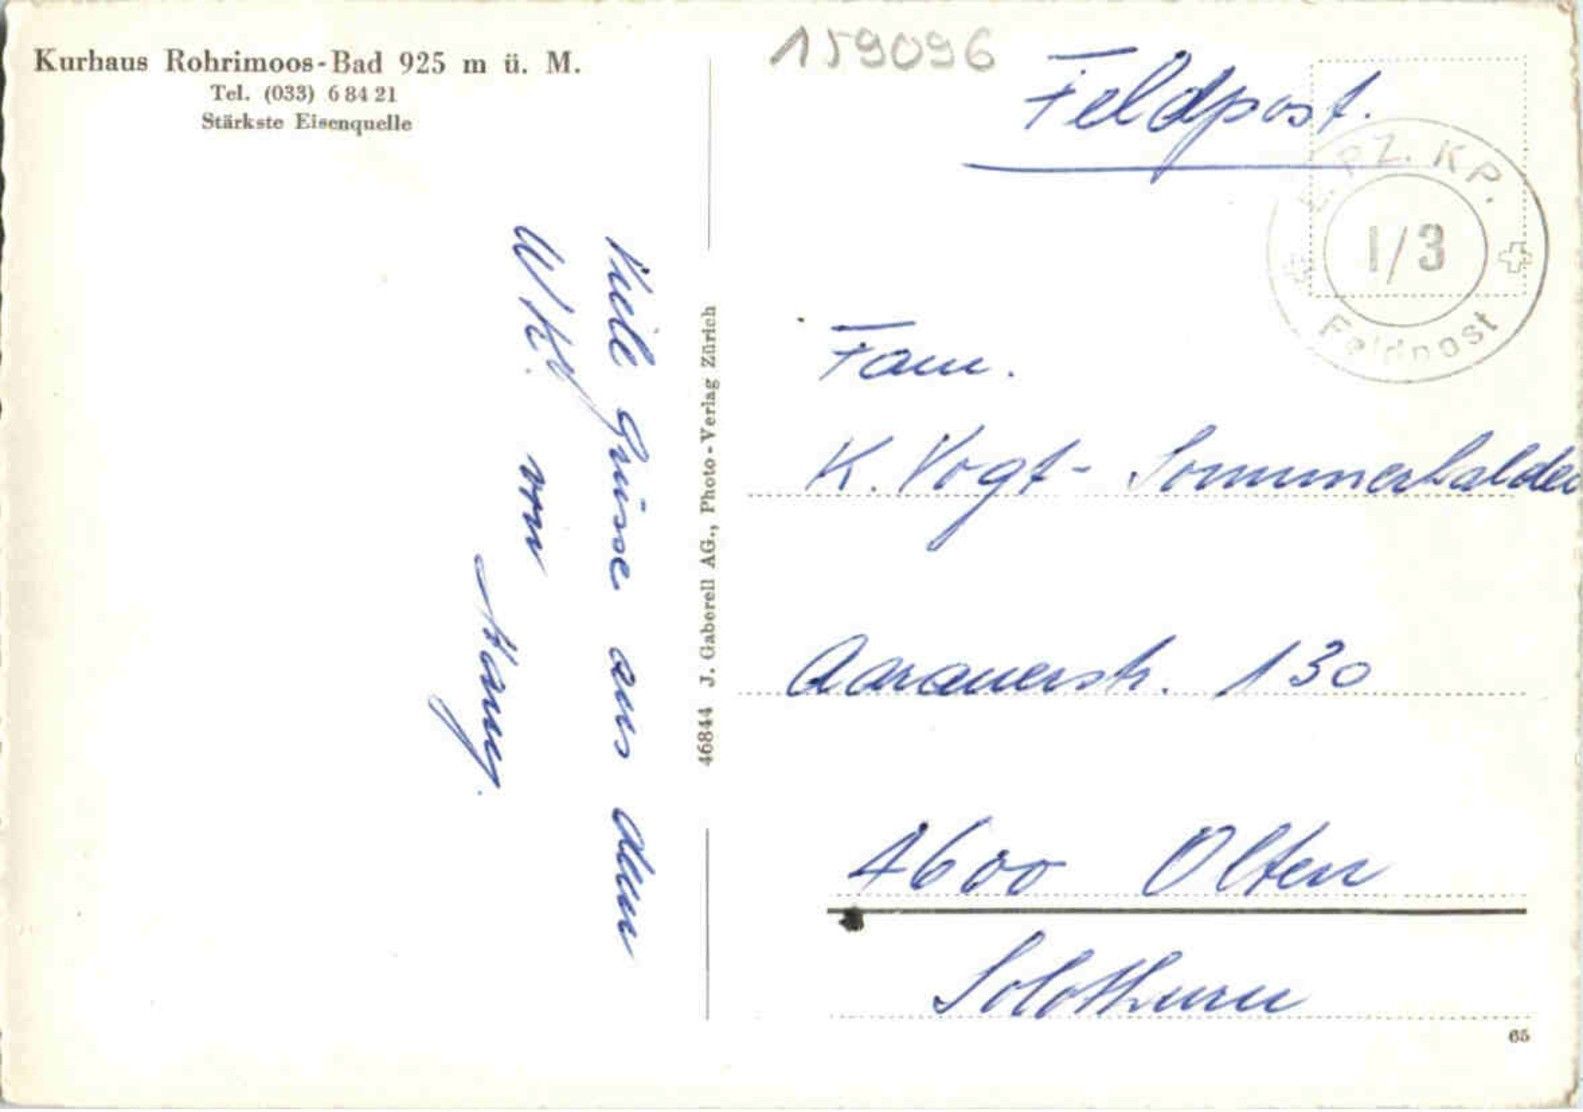 Kurhaus Rohrimoos-Bad 925 m ü. M.
Tel. (033) 6 84 21
Stärkste Eisenquelle
Viele Grüsse aus dem
WK. von
46844 J. Gaberell AG., Photo-Verlag Zürich
159096
Feldpost.
PZ. KP.
1/3
Feldpost
Fam.
K. Vogt - Sommerhalder
Aarauerstr. 130
4600 Olten
Solothurn
65